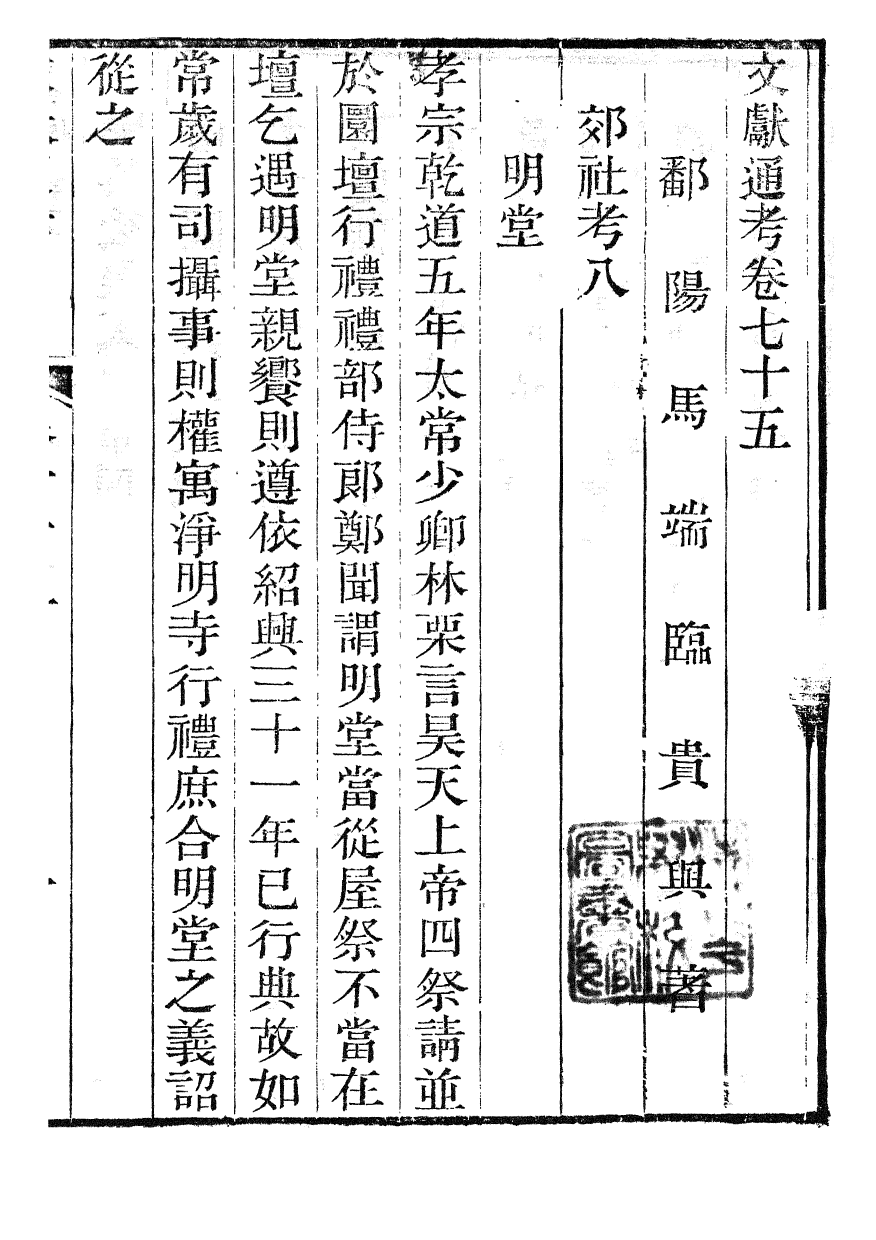 文獻通考卷七十五
鄱陽馬端臨貴與著
郊社考八
明堂
孝宗乾道五年太常少卿林栗言昊天上帝四祭請並
於圜壇行禮禮部侍郎鄭聞謂明堂當從屋祭不當在
壇乞遇明堂親饗則遵依紹興三十一年已行典故如
常歲有司攝事則權寓淨明寺行禮庶合明堂之義詔
從之